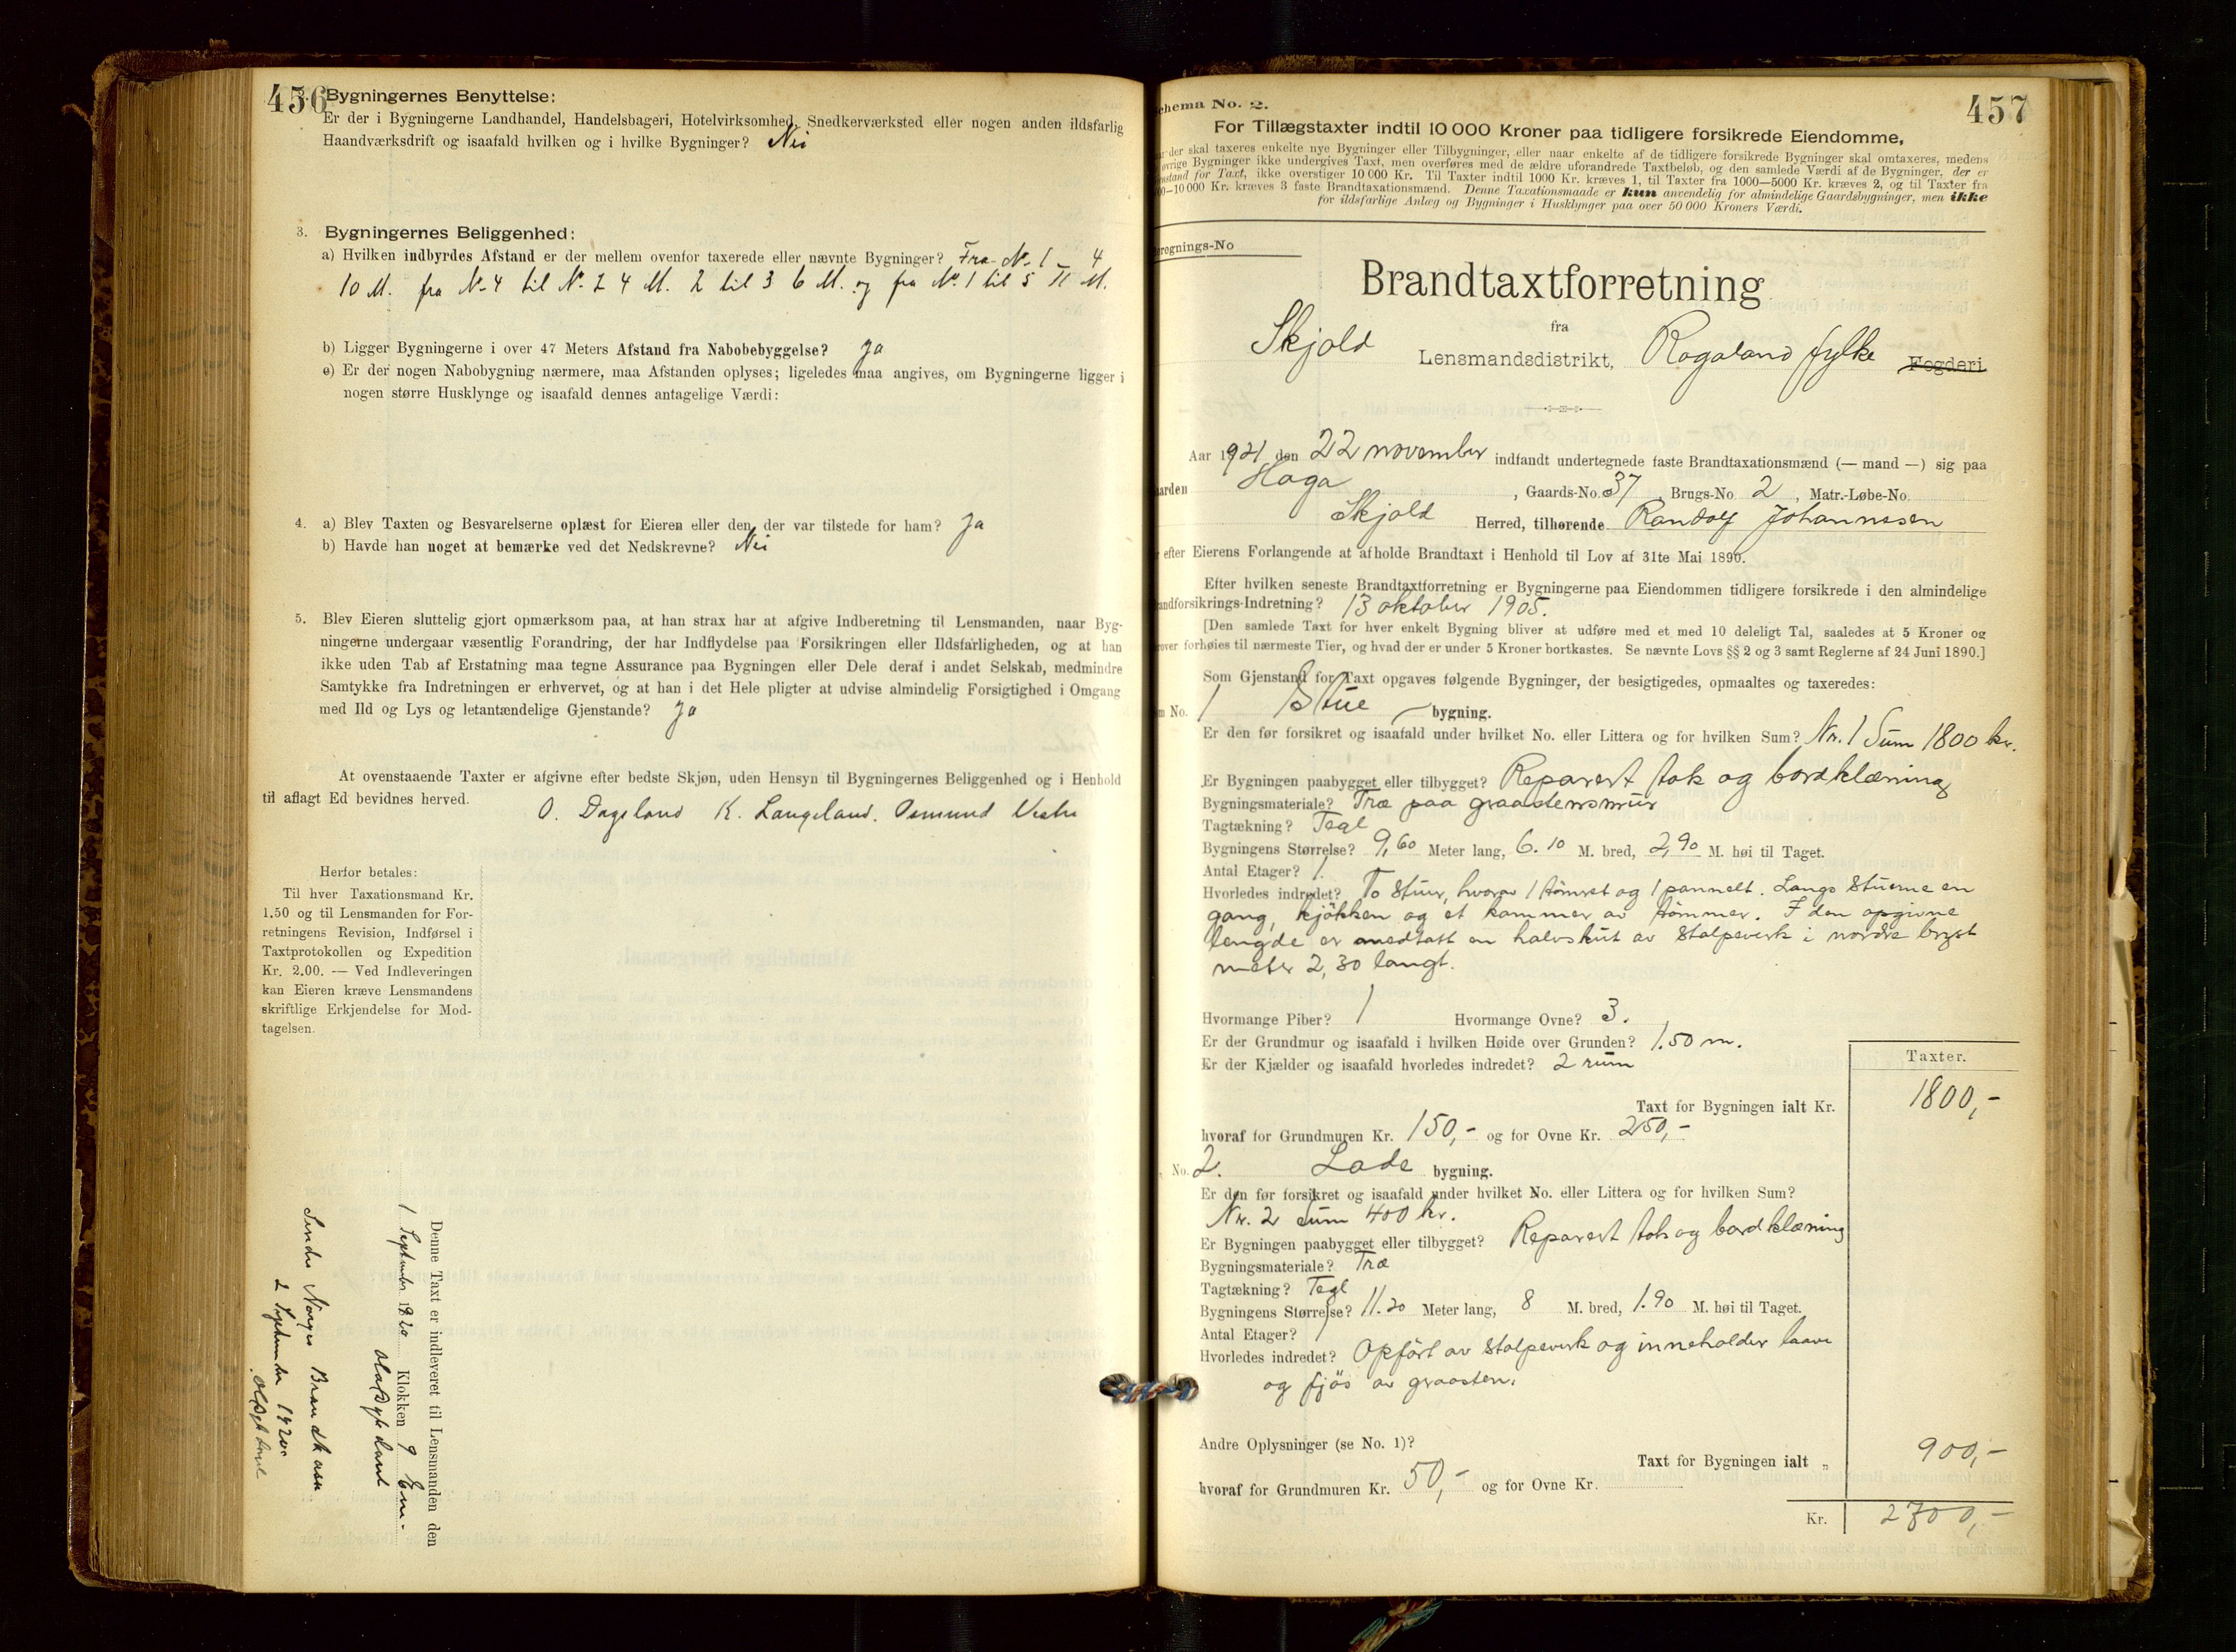 456
Bygningernes Benyttelse:
Er der i Bygningerne Landhandel, Handelsbageri, Hotelvirksomhed, Snedkerværksted eller nogen anden ildsfarlig
Haandværksdrift og isaafald hvilken og i hvilke Bygninger? Nei
3. Bygningernes Beliggenhed:
a) Hvilken indbyrdes Afstand er der mellem ovenfor taxerede eller nævnte Bygninger? Fra No. 1 – 4
10 M. fra No. 4 til No. 2 4 M. 2 til 3 6 M. og fra No. 1 til 5 11 M.
b) Ligger Bygningerne i over 47 Meters Afstand fra Nabobebyggelse? Ja
c) Er der nogen Nabobygning nærmere, maa Afstanden oplyses; ligeledes maa angives, om Bygningerne ligger i
nogen større Husklynge og isaafald dennes antagelige Værdi:
4. a) Blev Taxten og Besvarelserne oplæst for Eieren eller den, der var tilstede for ham? Ja
b) Havde han noget at bemærke ved det Nedskrevne? Nei
5. Blev Eieren sluttelig gjort opmærksom paa, at han strax har at afgive Indberetning til Lensmanden, naar Byg-
ningerne undergaar væsentlig Forandring, der har Indflydelse paa Forsikringen eller Ildsfarligheden, og at han
ikke uden Tab af Erstatning maa tegne Assurance paa Bygningen eller Dele deraf i andet Selskab, medmindre
Samtykke fra Indretningen er erhvervet, og at han i det Hele pligter at udvise almindelig Forsigtighed i Omgang
med Ild og Lys og letantændelige Gjenstande? Ja
At ovenstaaende Taxter er afgivne efter bedste Skjøn, uden Hensyn til Bygningernes Beliggenhed og i Henhold
til aflagt Ed bevidnes herved.
O. Dagsland K. Langeland. Osmund Vestre
Herfor betales:
Til hver Taxationsmand Kr.
1.50 og til Lensmanden for For-
retningens Revision, Indførsel i
Taxtprotokollen og Expedition
Kr. 2.00. — Ved Indleveringen
kan Eieren kræve Lensmandens
skriftlige Erkjendelse for Mod-
tagelsen.
Denne Taxt er indleveret til Lensmanden den
1 September 1920 Klokken 9 Em.
Sendt Norges Brandkasse
2 September 1920.
457
Schema No. 2.
For Tillægstaxter indtil 10 000 Kroner paa tidligere forsikrede Eiendomme,
der skal taxeres enkelte nye Bygninger eller Tilbygninger, eller naar enkelte af de tidligere forsikrede Bygninger skal omtaxeres, medens
øvrige Bygninger ikke undergives Taxt, men overføres med de ældre uforandrede Taxtbeløb, og den samlede Værdi af de Bygninger, der er
enstand for Taxt, ikke overstiger 10 000 Kr. Til Taxter indtil 1000 Kr. kræves 1, til Taxter fra 1000—5000 Kr. kræves 2, og til Taxter fra
00—10 000 Kr. kræves 3 faste Brandtaxationsmænd. Denne Taxationsmaade er kun anvendelig for almindelige Gaardsbygninger, men ikke
for ildsfarlige Anlæg og Bygninger i Husklynger paa over 50 000 Kroners Værdi.
eregnings-No
Brandtaxtforretning
fra
Skjold Lensmandsdistrikt, Rogaland fylke Fogderi
Aar 1921 den 22 november indfandt undertegnede faste Brandtaxationsmænd (— mand —) sig paa
aarden Haga, Gaards-No. 37, Brugs-No. 2, Matr.-Løbe-No.
Skjold Herred, tilhørende Randolf Johannesen
efter Eierens Forlangende at afholde Brandtaxt i Henhold til Lov af 31te Mai 1890.
Efter hvilken seneste Brandtaxtforretning er Bygningerne paa Eiendommen tidligere forsikrede i den almindelige
andforsikrings-Indretning? 13 oktober 1905.
[Den samlede Taxt for hver enkelt Bygning bliver at udføre med et med 10 deleligt Tal, saaledes at 5 Kroner og
rover forhøies til nærmeste Tier, og hvad der er under 5 Kroner bortkastes. Se nævnte Lovs §§ 2 og 3 samt Reglerne af 24 Juni 1890.]
Som Gjenstand for Taxt opgaves følgende Bygninger, der besigtigedes, opmaaltes og taxeredes:
m No. 1 Stue bygning.
Er den før forsikret og isaafald under hvilket No. eller Littera og for hvilken Sum? Nr. 1 Sum 1800 kr.
Er Bygningen paabygget eller tilbygget? Reparert tak og bordklæning
Bygningsmateriale? Træ paa graastensmur
Tagtækning? Tegl
Bygningens Størrelse? 9,60 Meter lang, 6.10 M. bred, 2,90 M. høi til Taget.
Antal Etager? 1
Hvorledes indredet? To stuer, hvorav 1 tømret og 1 pannelt. Langs stuerne en
gang, kjökken og et kammer av tömmer. I den opgivne
lengde er medtatt en halvskut av stolpeverk i nordre bryst
meter 2,30 langt.
Hvormange Piber? 1 Hvormange Ovne? 3.
Er der Grundmur og isaafald i hvilken Høide over Grunden? 1.50 m.
Er der Kjælder og isaafald hvorledes indredet? 2 rum
Taxter.
Taxt for Bygningen ialt Kr. 1800,-
hvoraf for Grundmuren Kr. 150,- og for Ovne Kr. 250,-
No. 2. Lade bygning.
Er den før forsikret og isaafald under hvilket No. eller Littera og for hvilken Sum?
Nr. 2 Sum 400 kr.
Er Bygningen paabygget eller tilbygget? Reparert tak og bordklæning
Bygningsmateriale? Træ
Tagtækning? Tegl
Bygningens Størrelse? 11.20 Meter lang, 8 M. bred, 1.90 M. høi til Taget.
Antal Etager? 1
Hvorledes indredet? Opført av stolpeverk og inneholder laave
og fjös av graasten.
Andre Oplysninger (se No. 1)?
Taxt for Bygningen ialt „ 900,-
hvoraf for Grundmuren Kr. 50,- og for Ovne Kr.
Kr. 2700,-